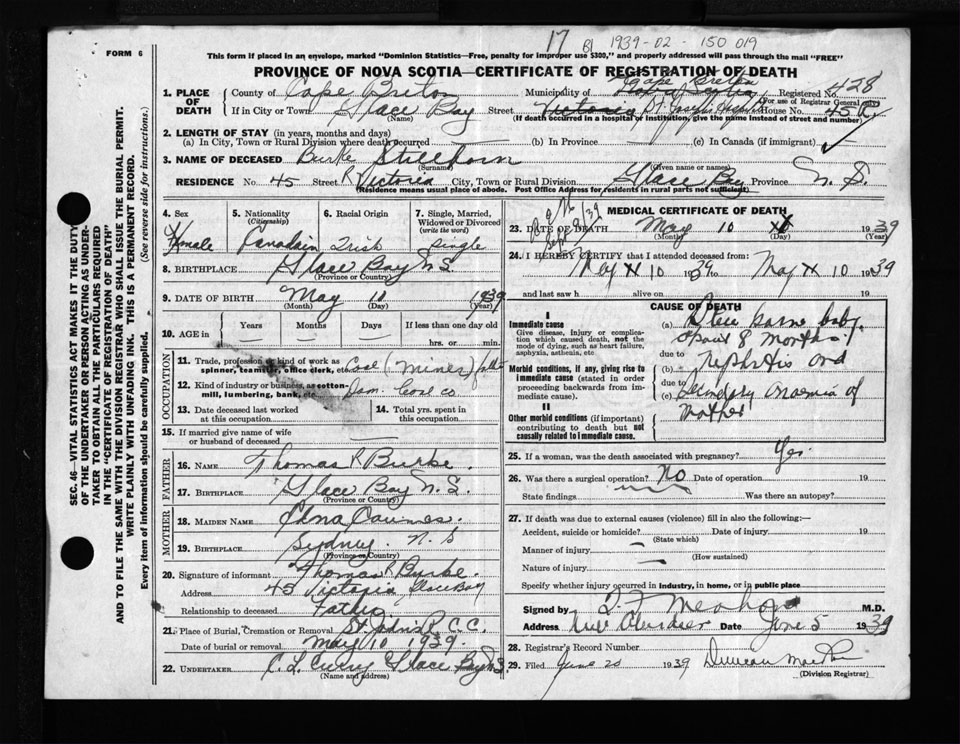 17 1939-02-150 019
FORM 6
This form if placed in an envelope, marked "Dominion Statistics—Free, penalty for improper use $300," and properly addressed will pass through the mail "FREE"
PROVINCE OF NOVA SCOTIA—CERTIFICATE OF REGISTRATION OF DEATH
1. PLACE OF DEATH
County of Cape Breton Municipality of Cape Breton Registered No. 428
(For use of Registrar General only)
If in City or Town Glace Bay Street Victoria St. Joseph's Hospital House No. 45
(Name) (If death occurred in a hospital or institution, give the name instead of street and number)
2. LENGTH OF STAY (in years, months and days)
(a) In City, Town or Rural Division where death occurred (b) In Province (c) In Canada (if immigrant)
3. NAME OF DECEASED Burke Stillborn
(Surname) (Given name or names)
RESIDENCE No. 45 Street Victoria City, Town or Rural Division Glace Bay Province N. S.
(Residence means usual place of abode. Post Office Address for residents in rural parts not sufficient)
4. Sex
Female
5. Nationality
(Citizenship)
Canadain
6. Racial Origin
Irish
7. Single, Married, Widowed or Divorced
(write the word)
Single
8. BIRTHPLACE Glace Bay N.S.
(Province or Country)
9. DATE OF BIRTH May 10 1939
(Month) (Day) (Year)
10. AGE in
Years Months Days If less than one day old
hrs. or min.
OCCUPATION
11. Trade, profession or kind of work as spinner, teamster, office clerk, etc. (mines)
12. Kind of industry or business, as cotton-mill, lumbering, bank, etc. Dom. Coal Co
13. Date deceased last worked at this occupation
14. Total yrs. spent in this occupation
15. If married give name of wife or husband of deceased
FATHER
16. NAME Thomas R Burke.
17. BIRTHPLACE Glace Bay N. S.
(Province or Country)
MOTHER
18. MAIDEN NAME Edna
19. BIRTHPLACE Sydney. N. S
(Province or Country)
20. Signature of informant Thomas R Burke.
Address 45 Victoria Glace Bay
Relationship to deceased Father
21. Place of Burial, Cremation or Removal St John's R. C. C.
Date of burial or removal May 10 1939.
22. UNDERTAKER C. L. Curry Glace Bay N.S.
(Name and address)
MEDICAL CERTIFICATE OF DEATH
23. DATE OF DEATH May 10 1939
(Month) (Day) (Year)
24. I HEREBY CERTIFY that I attended deceased from:
May 10 1939 to May 10 1939
and last saw h alive on 19
CAUSE OF DEATH
I
Immediate cause
Give disease, injury or complication which caused death, not the mode of dying, such as heart failure, asphyxia, asthenia, etc
(a) Still borne baby.
about 8 months.
due to
Morbid conditions, if any, giving rise to immediate cause (stated in order proceeding backwards from immediate cause).
(b) Nephritis and
due to
(c) Secondary anaemia of
mother
II
Other morbid conditions (if important) contributing to death but not causally related to immediate cause.
25. If a woman, was the death associated with pregnancy? Yes.
26. Was there a surgical operation? No Date of operation 19
State findings Was there an autopsy?
27. If death was due to external causes (violence) fill in also the following:—
Accident, suicide or homicide? Date of injury 19
(State which)
Manner of injury
(How sustained)
Nature of injury
Specify whether injury occurred in industry, in home, or in public place
Signed by M.D.
Address New Aberdeen Date June 5 1939
28. Registrar's Record Number
29. Filed June 20 1939 Duncan
(Division Registrar)
SEC. 46—VITAL STATISTICS ACT MAKES IT THE DUTY OF THE UNDERTAKER OR PERSON ACTING AS UNDERTAKER TO OBTAIN ALL THE PARTICULARS REQUIRED IN THE "CERTIFICATE OF REGISTRATION OF DEATH"
AND TO FILE THE SAME WITH THE DIVISION REGISTRAR WHO SHALL ISSUE THE BURIAL PERMIT.
WRITE PLAINLY WITH UNFADING INK. THIS IS A PERMANENT RECORD.
Every item of information should be carefully supplied. (See reverse side for instructions.)